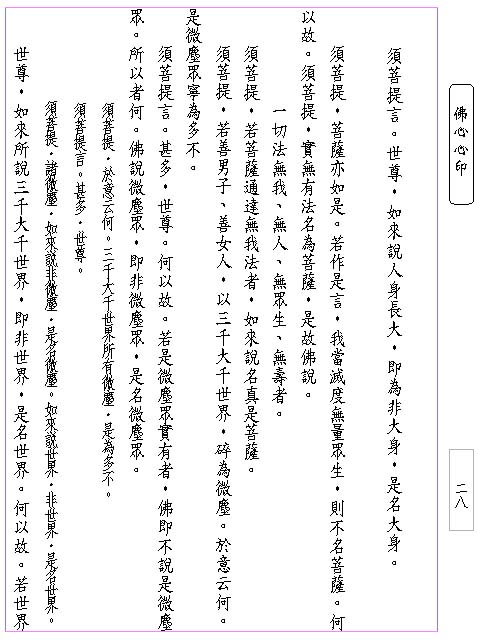 佛心心印
須菩提言。世尊，如來說人身長大，即為非大身，是名大身。
須菩提，菩薩亦如是。若作是言，我當滅度無量眾生，則不名菩薩。何
以故。須菩提，實無有法名為菩薩，是故佛說。
一切法無我、無人、無眾生、無壽者。
須菩提，若菩薩通達無我法者，如來說名真是菩薩。
須菩提，若善男子、善女人，以三千大千世界，碎為微塵。於意云何。
是微塵眾寧為多不。
須菩提言。甚多，世尊。何以故。若是微塵眾實有者，佛即不說是微塵
眾。所以者何。佛說微塵眾，即非微塵眾，是名微塵眾。
須菩提，於意云何。三千大千世界所有微塵，是為多不。
須菩提言。甚多，世尊。
須菩提，諸微塵，如來說非微塵，是名微塵。如來說世界，非世界，是名世界。
世尊，如來所說三千大千世界，即非世界，是名世界。何以故。若世界
二八